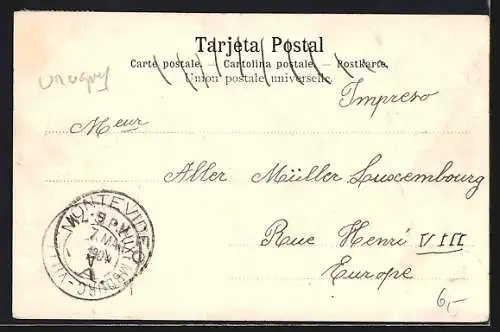 Tarjeta Postal
Carte postale. – Cartolina postale. – Postkarte.
Union postale universelle.
Uruguay
Impreso
Meur
Aller Müller Luxembourg
Rue Henri VIII
Europe
MONTEVIDEO
LUXEMBOURG-VILLE
6,-